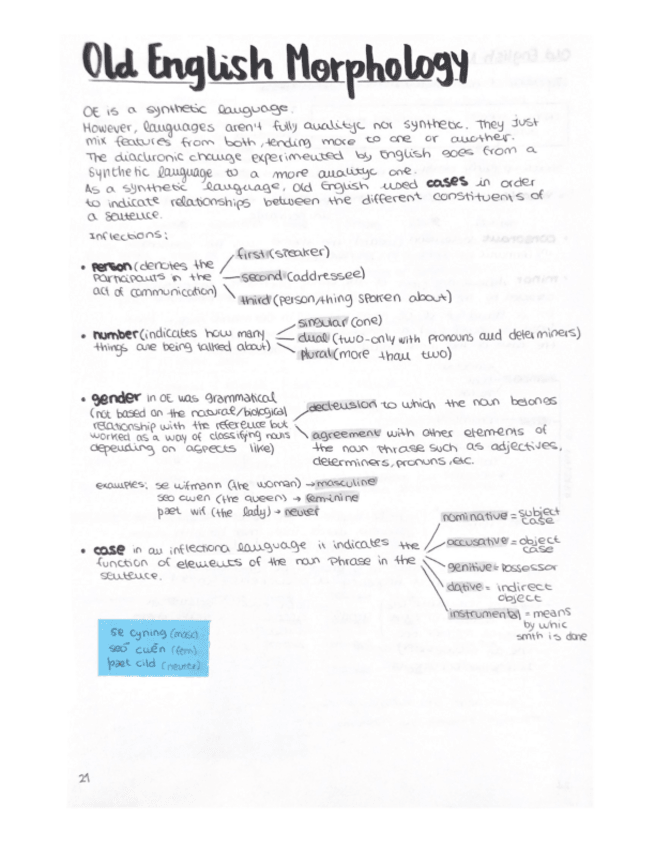 Old English Morphology
OE is a synthetic language.
However, languages aren't fully analityc nor synthetic. They just
mix features from both, tending more to one or another.
The diachronic change experimented by English goes from a
synthetic language to a more analityc one.
As a synthetic language, Old English used cases in order
to indicate relationships between the different constituents of
a sentence.
Inflections:
• person (denotes the
participants in the
act of communication)
first (speaker)
second (addressee)
third (person/thing spoken about)
• number (indicates how many
things are being talked about)
singular (one)
dual (two-only with pronouns and determiners)
plural (more than two)
• gender in OE was grammatical
(not based on the natural/biological
relationship with the reference but
worked as a way of classifying nouns
depending on aspects like)
declension to which the noun belongs
agreement with other elements of
the noun phrase such as adjectives,
determiners, pronouns, etc.
examples: se wifmann (the woman) → masculine
seo cwen (the queen) → feminine
þaet wif (the lady) → neuter
• case in an inflectional language it indicates the
function of elements of the noun phrase in the
sentence.
nominative = subject
case
accusative = object
case
genitive = possessor
dative = indirect
object
instrumental = means
by whic
smth is done
se cyning (masc)
seō cwēn (fem)
þaet cild (neuter)
21